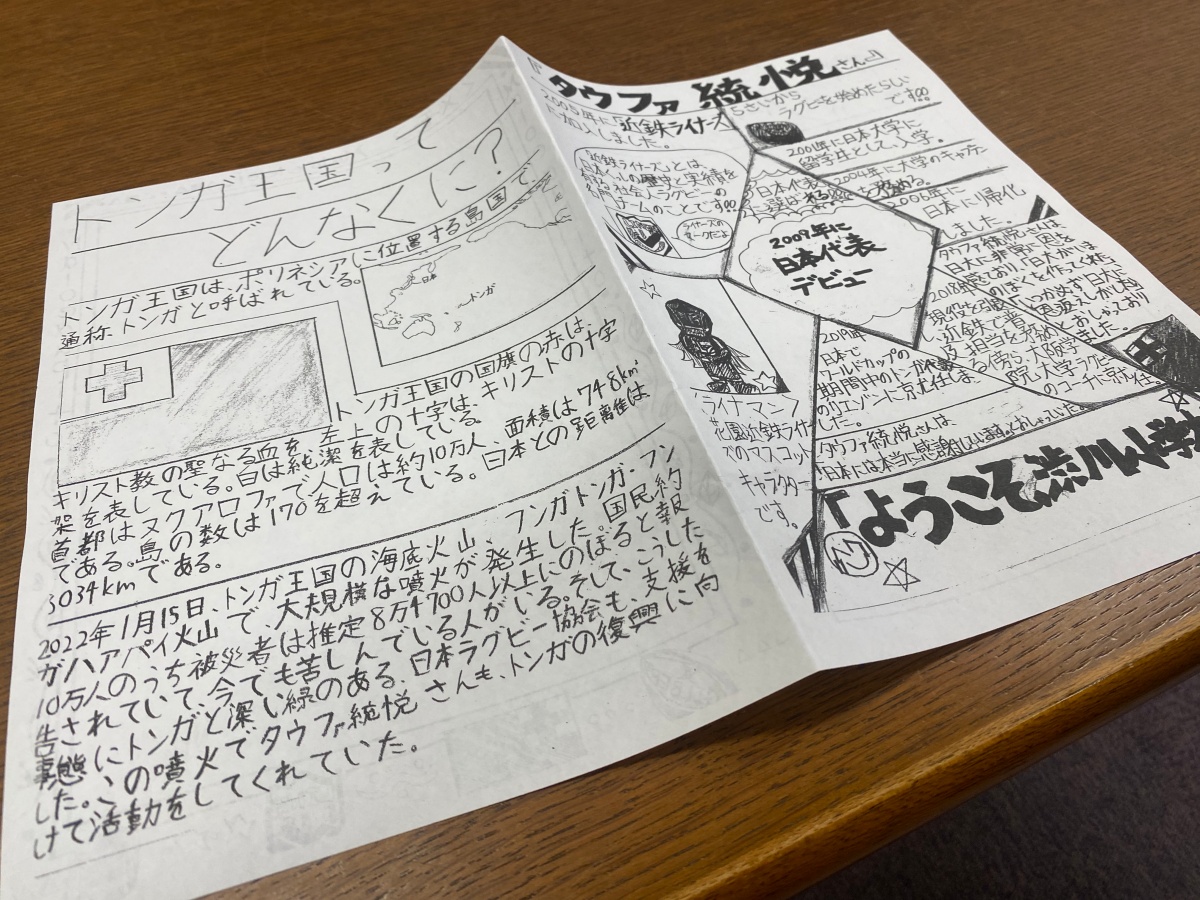 トンガ王国って
どんなくに?
トンガ王国は、ポリネシアに位置する島国で、
通称トンガと呼ばれている。
日本
トンガ
トンガ王国の国旗の赤は、
キリスト教の聖なる血を、左上の十字は、キリストの十字
架を表している。白は純潔を表している。
首都はヌクアロファで人口は約10万人、面積は748km²
である。島の数は170を超えている。日本との距離は
8034kmである。
2022年1月15日、トンガ王国の海底火山、フンガトンガ・フン
ガハアパイ火山で、大規模な噴火が発生した。国民約
10万人のうち被災者は推定8万4700人以上にのぼると報
告されていて、今でも苦しんでいる人がいる。そして、こうした
事態にトンガと深い緑のある、日本ラグビー協会も、支援を
した。この噴火でタウファ統悦さんも、トンガの復興に向
けて活動をしてくれていた。
『タウファ 統悦さん』
5さいから
ラグビを始めたらしい
です!!!
2005年に「近鉄ライナーズ」
に加入しました。
2001年に日本大学に
留学生として、入学。
「近鉄ライナーズ」とは、
日本の歴史と実績を
社会人ラグビーの
チームのことです!!!
ライナーズの
マークだよ
2004年に大学のキャプテン
2006年に
日本に帰化
しました。
日本代表
2009年に
日本代表
デビュー
タウファ統悦さんは、
日大に非常に恩を
感じており、「日大が今
のぼくを作ってくれた。
いつか必ず日大に
恩返えしがしたい
とおしゃっており
ました。
2018年
現役を引退
し、近鉄で普
及担当を務め
る傍ら、大阪学
院大学ラグビー
のコーチに就任
2019年
日本で
ワールドカップの
期間中のトンガ代表
のリエゾンに就任しま
した。
タウファ統悦さんは、
日本には本当に感謝しています。とおしゃっていた。
「ライナマン」
花園近鉄ライナー
ズのマスコット
キャラクター
です。
「ようこそ渋川小学校